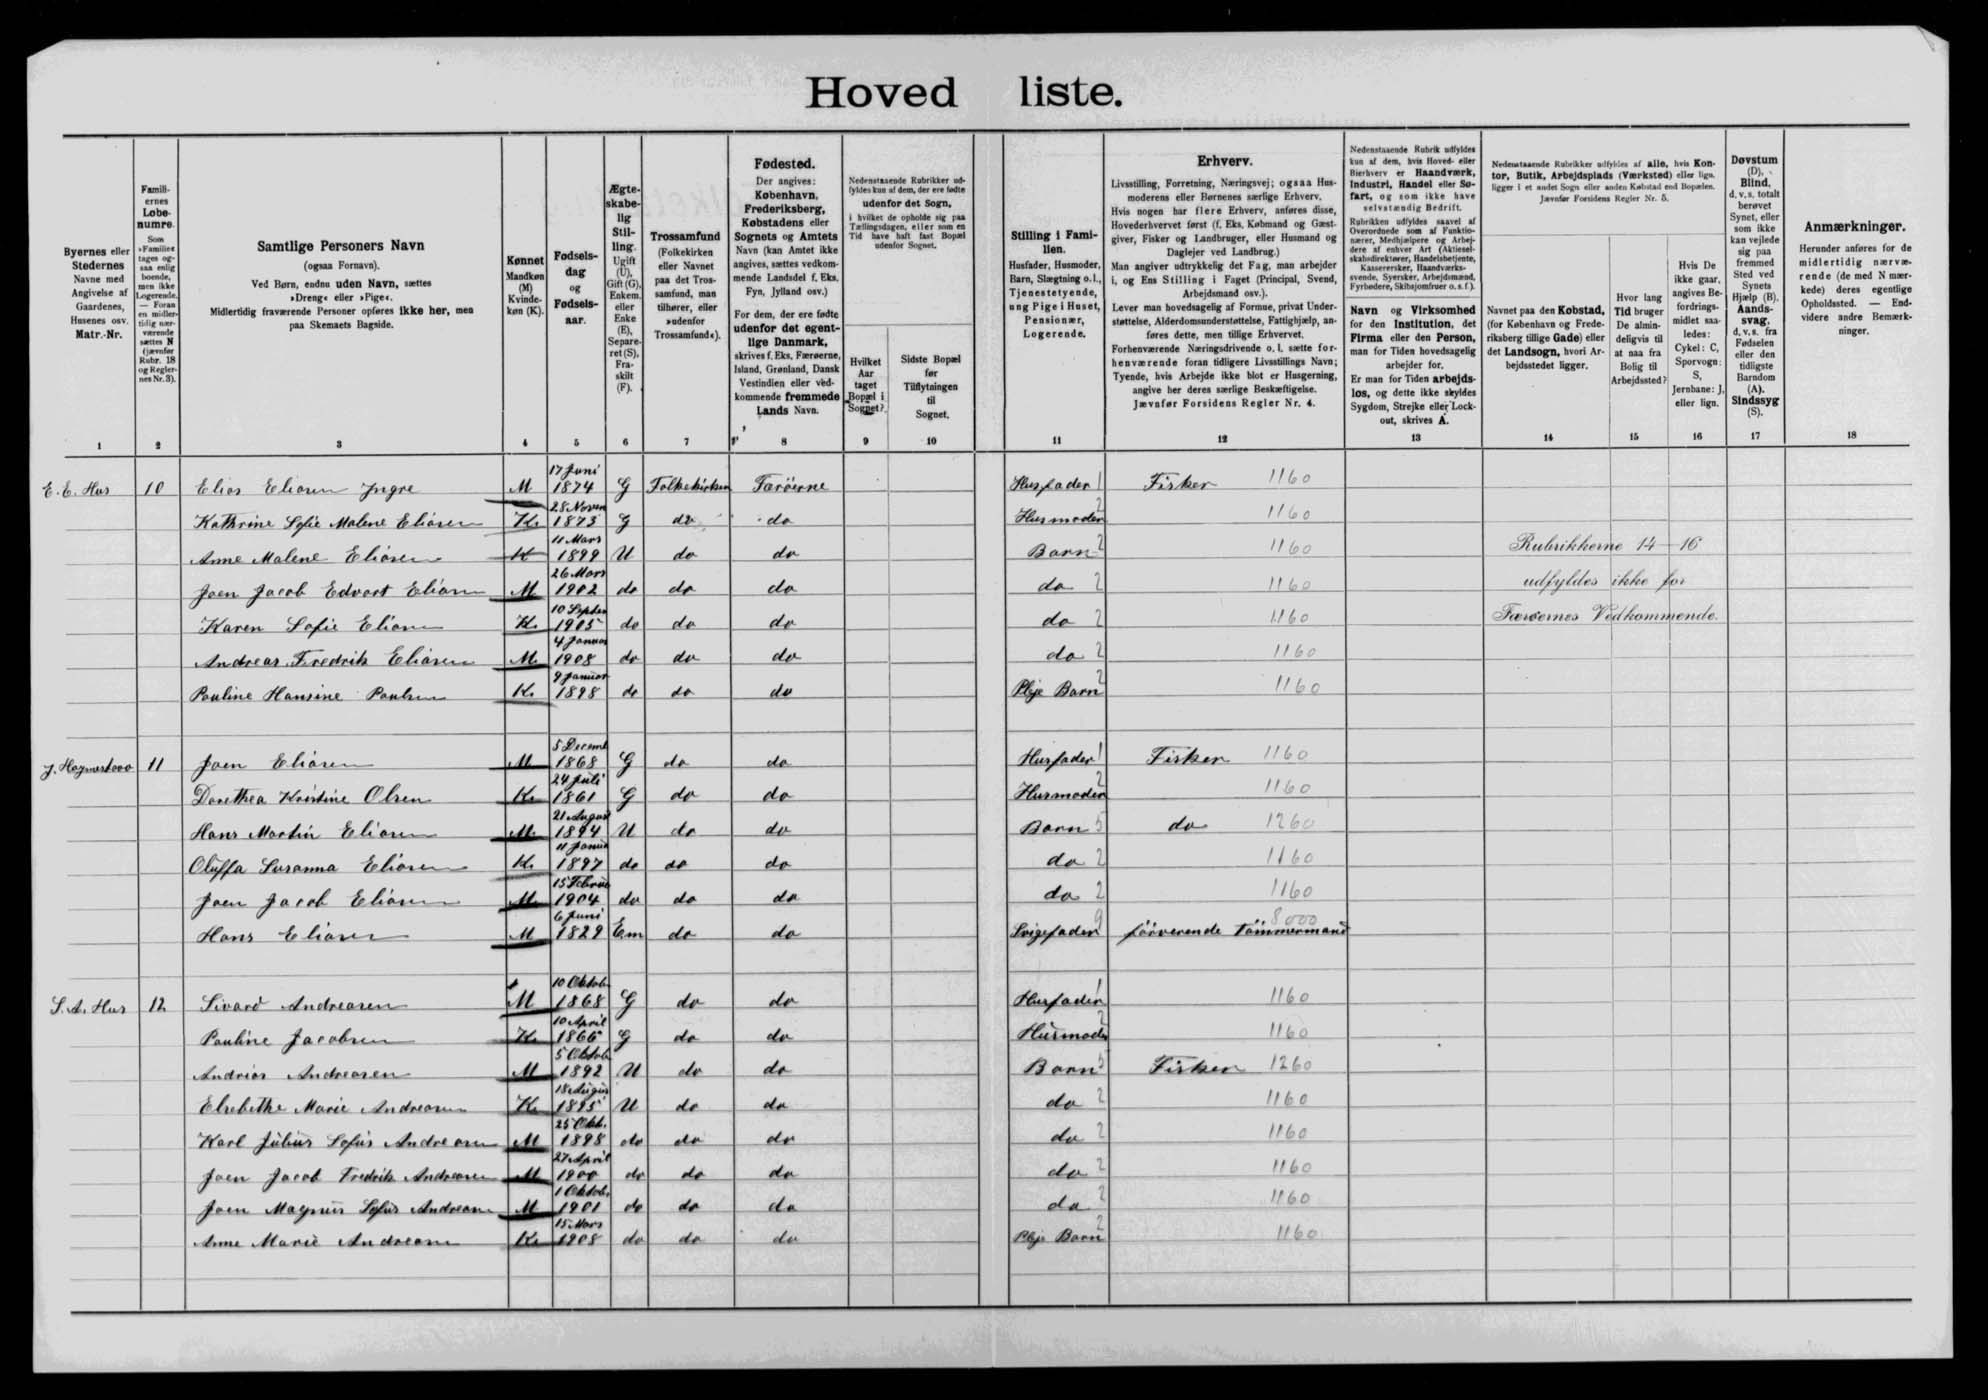 Hoved liste.
Byernes eller
Stedernes
Navne med
Angivelse af
Gaardenes,
Husenes osv.
Matr.-Nr.
1
Famili-
ernes
Løbe-
numre.
Som
»Familie«
tages og-
saa enlig
boende,
men ikke
Logerende.
— Foran
en midler-
tidig nær-
værende
sættes N
(jævnfør
Rubr. 18
og Regler-
nes Nr. 3).
2
Samtlige Personers Navn
(ogsaa Fornavn).
Ved Børn, endnu uden Navn, sættes
»Dreng« eller »Pige«.
Midlertidig fraværende Personer opføres ikke her, men
paa Skemaets Bagside.
3
Kønnet
Mandkøn
(M)
Kvinde-
køn (K).
4
Fødsels-
dag
og
Fødsels-
aar.
5
Ægte-
skabe-
lig
Stil-
ling.
Ugift
(U),
Gift (G),
Enkem.
eller
Enke
(E),
Separe-
ret (S),
Fra-
skilt
(F).
6
Trossamfund
(Folkekirken
eller Navnet
paa det Tros-
samfund, man
tilhører, eller
»udenfor
Trossamfund«).
7
Fødested.
Der angives:
København,
Frederiksberg,
Købstadens eller
Sognets og Amtets
Navn (kan Amtet ikke
angives, sættes vedkom-
mende Landsdel f. Eks.
Fyn, Jylland osv.)
For dem, der ere fødte
udenfor det egent-
lige Danmark,
skrives f. Eks. Færøerne,
Island, Grønland, Dansk
Vestindien eller ved-
kommende fremmede
Lands Navn.
8
Nedenstaaende Rubrikker ud-
fyldes kun af dem, der ere fødte
udenfor det Sogn,
i hvilket de opholde sig paa
Tællingsdagen, eller som en
Tid have haft fast Bopæl
udenfor Sognet.
Hvilket
Aar
taget
Bopæl i
Sognet?
9
Sidste Bopæl
før
Tilflytningen
til
Sognet.
10
Stilling i Fami-
lien.
Husfader, Husmoder,
Barn, Slægtning o.l.,
Tjenestetyende,
ung Pige i Huset,
Pensionær,
Logerende.
11
Erhverv.
Livsstilling, Forretning, Næringsvej; ogsaa Hus-
moderens eller Børnenes særlige Erhverv.
Hvis nogen har flere Erhverv, anføres disse,
Hovederhvervet først (f. Eks. Købmand og Gæst-
giver, Fisker og Landbruger, eller Husmand og
Daglejer ved Landbrug.)
Man angiver udtrykkelig det Fag, man arbejder
i, og Ens Stilling i Faget (Principal, Svend,
Arbejdsmand osv.).
Lever man hovedsagelig af Formue, privat Under-
støttelse, Alderdomsunderstøttelse, Fattighjælp, an-
føres dette, men tillige Erhvervet.
Forhenværende Næringsdrivende o. l. sætte for-
henværende foran tidligere Livsstillings Navn;
Tyende, hvis Arbejde ikke blot er Husgerning,
angive her deres særlige Beskæftigelse.
Jævnfør Forsidens Regler Nr. 4.
12
Nedenstaaende Rubrik udfyldes
kun af dem, hvis Hoved- eller
Bierhverv er Haandværk,
Industri, Handel eller Sø-
fart, og som ikke have
selvstændig Bedrift.
Rubrikken udfyldes saavel af
Overordnede som af Funktio-
nærer, Medhjælpere og Arbej-
dere af enhver Art (Aktiesel-
skabsdirektører, Handelsbetjente,
Kassererksker, Haandværks-
svende, Syersker, Arbejdsmænd,
Fyrbødere, Skibsjomfruer o. s. f.).
Navn og Virksomhed
for den Institution, det
Firma eller den Person,
man for Tiden hovedsagelig
arbejder for.
Er man for Tiden arbejds-
løs, og dette ikke skyldes
Sygdom, Strejke eller Lock-
out, skrives A.
13
Nedenstaaende Rubrikker udfyldes af alle, hvis Kon-
tor, Butik, Arbejdsplads (Værksted) eller lign.
ligger i et andet Sogn eller anden Købstad end Bopælen.
Jævnfør Forsidens Regler Nr. 5.
Navnet paa den Købstad,
(for København og Frede-
riksberg tillige Gade) eller
det Landsogn, hvori Ar-
bejdsstedet ligger.
14
Hvor lang
Tid bruger
De almin-
deligvis til
at naa fra
Bolig til
Arbejdssted?
15
Hvis De
ikke gaar,
angives Be-
fordrings-
midlet saa-
ledes:
Cykel: C,
Sporvogn:
S,
Jernbane: J,
eller lign.
16
Døvstum
(D),
Blind,
d. v. s. totalt
berøvet
Synet, eller
som ikke
kan vejlede
sig paa
fremmed
Sted ved
Synets
Hjælp (B),
Aands-
svag,
d. v. s. fra
Fødselen
eller den
tidligste
Barndom
(A).
Sindssyg
(S).
17
Anmærkninger.
Herunder anføres for de
midlertidig nærvæ-
rende (de med N mær-
kede) deres egentlige
Opholdssted. — End-
videre andre Bemærk-
ninger.
18
E. E. Hus 10 Elias Eliasen Yngre M 17 Juni 1874 G Folkekirken Færöerne Husfader 1 Fisker 1160
Kathrine Sofie Malene Eliasen K. 28 Novem 1873 G do do Husmoder 2 1160
Anne Malene Eliasen K 11 Mars 1899 U do do Barn 2 1160 Rubrikkerne 14–16
Joen Jacob Edvart Eliasen M 26 Mars 1902 do do do do 2 1160 udfyldes ikke for
Karen Sofie Eliasen K. 10 Septem 1905 do do do do 2 1160 Færøernes Vedkommende.
Andreas Fredrik Eliasen M. 4 Januar 1908 do do do do 2 1160
Pauline Hansine Poulsen K. 9 Januar 1898 do do do Pleje Barn 2 1160
J. Høgnestovo 11 Joen Eliasen M 5 Decemb 1868 G do do Husfader 1 Fisker 1160
Dorethea Kristine Olsen K. 24 Juli 1861 G do do Husmoder 2 1160
Hans Martin Eliasen M. 21 August 1894 U do do Barn 5 do 1260
Oluffa Susanna Eliasen K. 11 Janua 1897 do do do do 2 1160
Joen Jacob Eliasen M. 15 Februa 1904 do do do do 2 1160
Hans Eliasen M 6 Juni 1829 Em do do Svigefader 9 förverende Tömmermand 8000
S. A. Hus 12 Sivard Andreasen M 10 Oktob 1868 G do do Husfader 1 1160
Pauline Jacobsen K. 10 April 1866 G do do Husmoder 2 1160
Andrias Andreasen M 5 Oktob 1892 U do do Barn 5 Fisker 1260
Elsebethe Marie Andreasen K. 18 Augus 1895 U do do do 2 1160
Karl Julius Sofus Andreasen M 25 Okt. 1898 do do do do 2 1160
Joen Jacob Fredrik Andreasen M 27 April 1900 do do do do 2 1160
Joen Magnus Sofus Andreasen M 1 Oktob 1901 do do do do 2 1160
Anne Marie Andreasen K. 15 Mars 1908 do do do Pleje Barn 2 1160